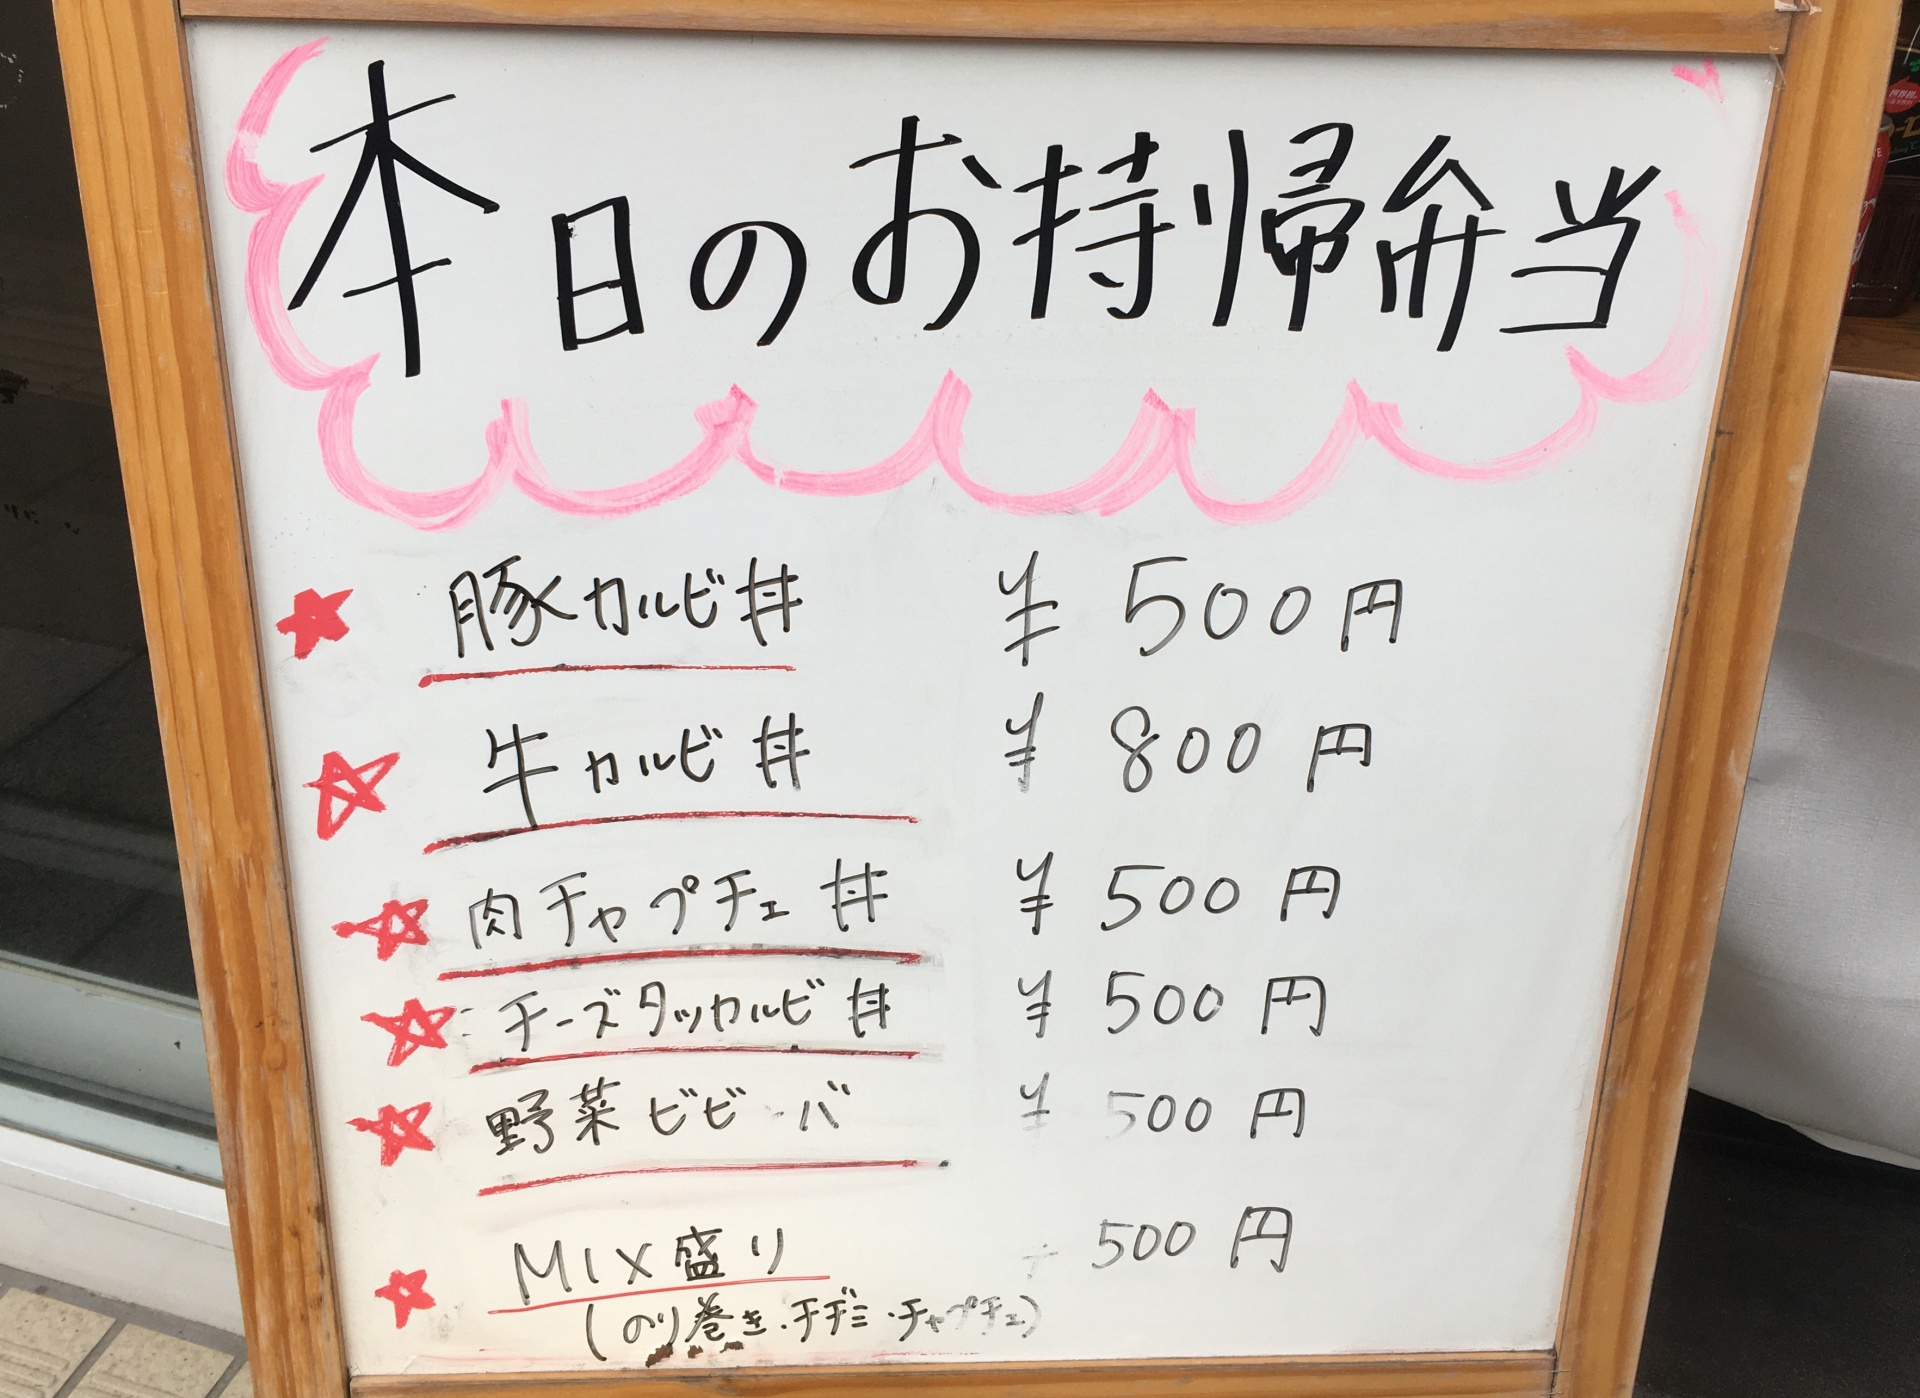 本日のお持帰弁当
豚カルビ丼 ¥500円
牛カルビ丼 ¥800円
肉チャプチェ丼 ¥500円
チーズタッカルビ丼 ¥500円
野菜ビビ バ ¥500円
MIX盛り 500円
(のり巻き・チヂミ・チャプチェ)